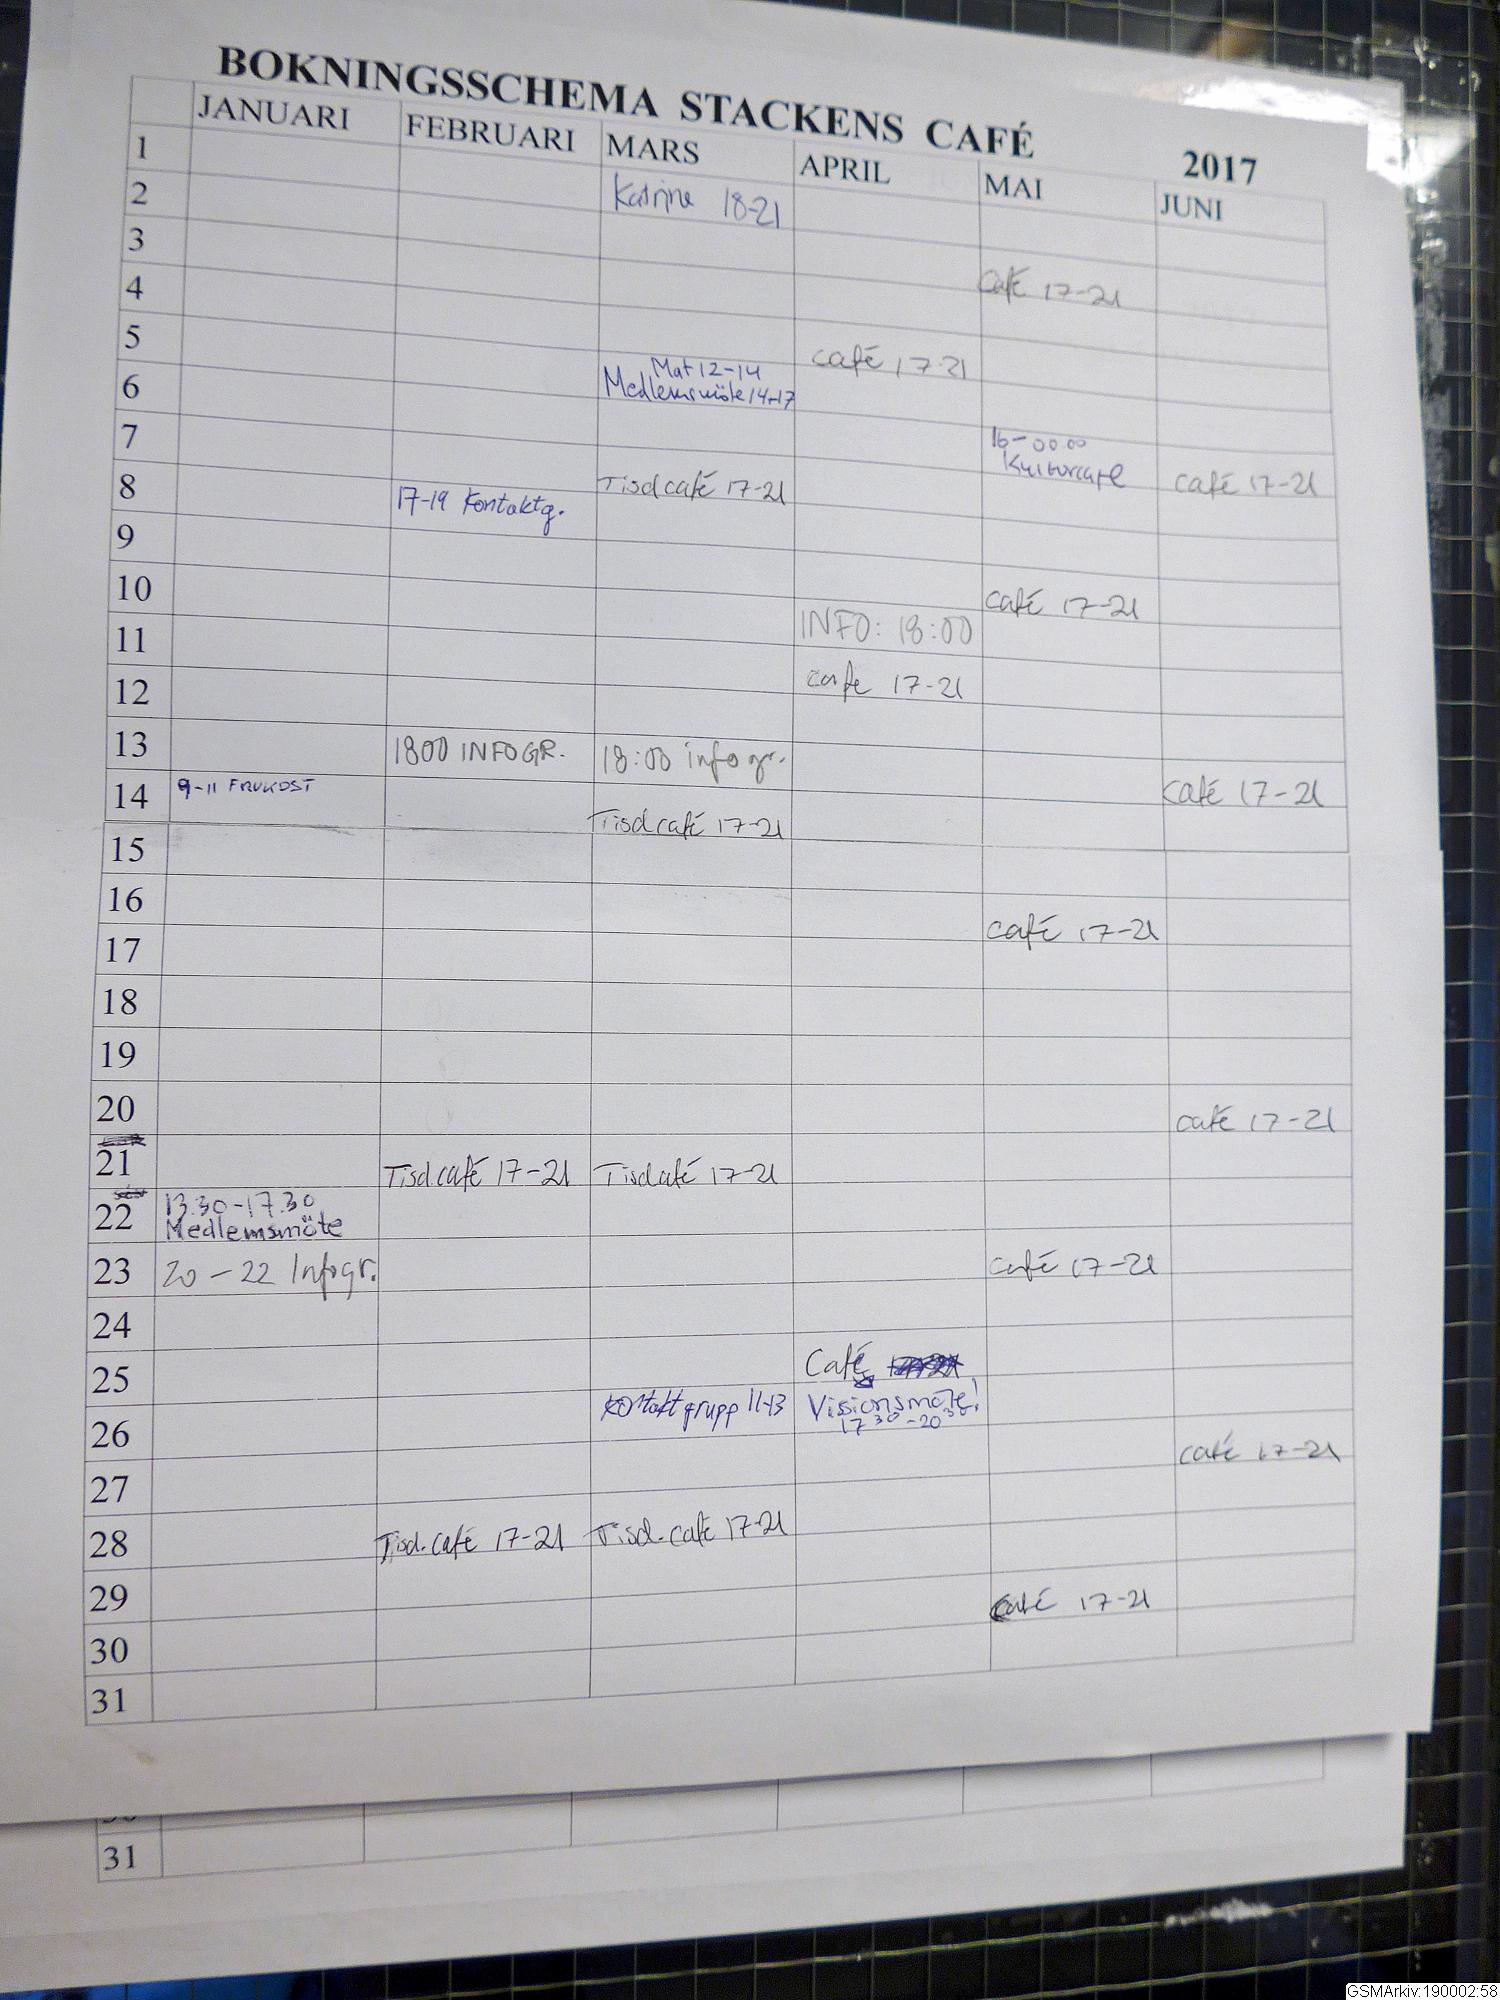 BOKNINGSSCHEMA STACKENS CAFÉ 2017
JANUARI FEBRUARI MARS APRIL MAI JUNI
1
2 Katrine 18-21
3
4 Café 17-21
5 café 17-21
6 Mat 12-14
Medlemsmöte 14-17
7 16-00.00
Kulturcafe
8 17-19 Kontaktg. Tisdcafé 17-21 café 17-21
9
10 café 17-21
11 INFO: 18:00
12 cafe 17-21
13 1800 INFOGR. 18:00 infogr.
14 9-11 FRUKOST Tisdcafé 17-21 café 17-21
15
16
17 café 17-21
18
19
20 café 17-21
21 Tisd.café 17-21 Tisdcafé 17-21
22 13.30-17.30
Medlemsmöte
23 20-22 Infogr. café 17-21
24
25 Café
26 Kontaktgrupp 11-13 Visionsmöte!
17 30 -20 30
café 17-21
27
28 Tisd.café 17-21 Tisd.café 17-21
29 Café 17-21
30
31
31
GSMArkiv:190002:58